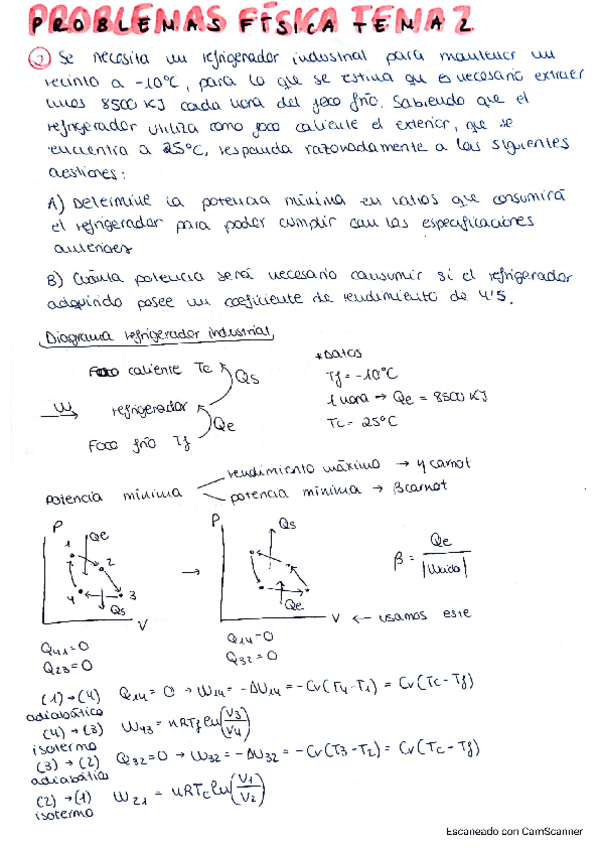 PROBLEMAS FÍSICA TEMA 2
1) Se necesita un refrigerador industrial para mantener un
recinto a -10ºC, para lo que se estima que es necesario extraer
unos 8500 KJ cada hora del foco frío. Sabiendo que el
refrigerador utiliza como foco caliente el exterior, que se
encuentra a 25ºC, responda razonadamente a las siguientes
cuestiones:
A) Determine la potencia mínima en vatios que consumirá
el refrigerador para poder cumplir con las especificaciones
anteriores
B) Cuánta potencia será necesario consumir si el refrigerador
adquirido posee un coeficiente de rendimiento de 4'5.
Diagrama refrigerador industrial
Foco caliente Tc
Qs
W refrigerador
Qe
Foco frío Tf
*DATOS
Tf = -10ºC
1 hora → Qe = 8500 KJ
Tc = 25ºC
Potencia mínima
rendimiento máximo → η carnot
potencia mínima → β carnot
P Qe 1 2 3 4 Qs V
→
P Qs Qe V ← usamos este
β = Qe / |Wneto|
Q41=0
Q23=0
Q14=0
Q32=0
(1)→(4) Q14 = 0 → W14 = -ΔU14 = -Cv(T4-T1) = Cv(Tc-Tf)
adiabático
(4)→(3) W43 = nRTf ln(V3/V4)
isotermo
(3)→(2) Q32=0 → W32 = -ΔU32 = -Cv(T3-T2) = Cv(Tc-Tf)
adiabático
(2)→(1) W21 = nRTc ln(V1/V2)
isotermo
Escaneado con CamScanner